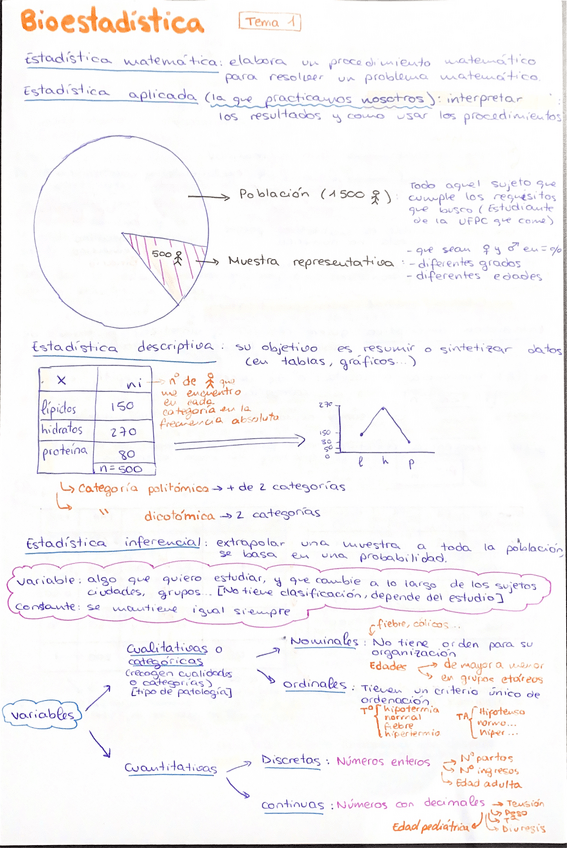 Bioestadística
Tema 1
Estadística matemática: elabora un procedimiento matemático
para resolver un problema matemático
Estadística aplicada (la que practicamos nosotros): interpretar
los resultados y como usar los procedimientos
Población (1500 ):
Todo aquel sujeto que
cumple los requisitos
que busco (Estudiante
de la UFPC que come)
500
Muestra representativa:
- que sean ♀ y ♂ en = nº
- diferentes grados
- diferentes edades
Estadística descriptiva: su objetivo es resumir o sintetizar datos
(en tablas, gráficos...)
x ni
lípidos 150
hidratos 270
proteína 80
n=500
nº de que
me encuentro
en cada
categoría en la
frecuencia absoluta
270
150
80
50
0
l h p
Categoría politómica → + de 2 categorías
" dicotómica → 2 categorías
Estadística inferencial: extrapolar una muestra a toda la población,
se basa en una probabilidad.
Variable: algo que quiero estudiar, y que cambie a lo largo de los sujetos
ciudades, grupos... [No tiene clasificación, depende del estudio]
Constante: se mantiene igual siempre
variables
Cualitativas o
categóricas
(recogen cualidades
o categorías)
[tipo de patología]
fiebre, cólicos...
Nominales: No tiene orden para su
organización
Edades → de mayor a menor
→ en grupos etáreos
Ordinales: Tienen un criterio único de
ordenación.
Tº { hipotermia
normal
fiebre
hipertermia
TA { Hipotenso
normo...
hiper...
Cuantitativas
Discretas: Números enteros
→ Nº partos
→ Nº ingresos
→ Edad adulta
Continuas: Números con decimales → Tensión
→ Peso
→ Tª
→ Diuresis
Edad pediátrica